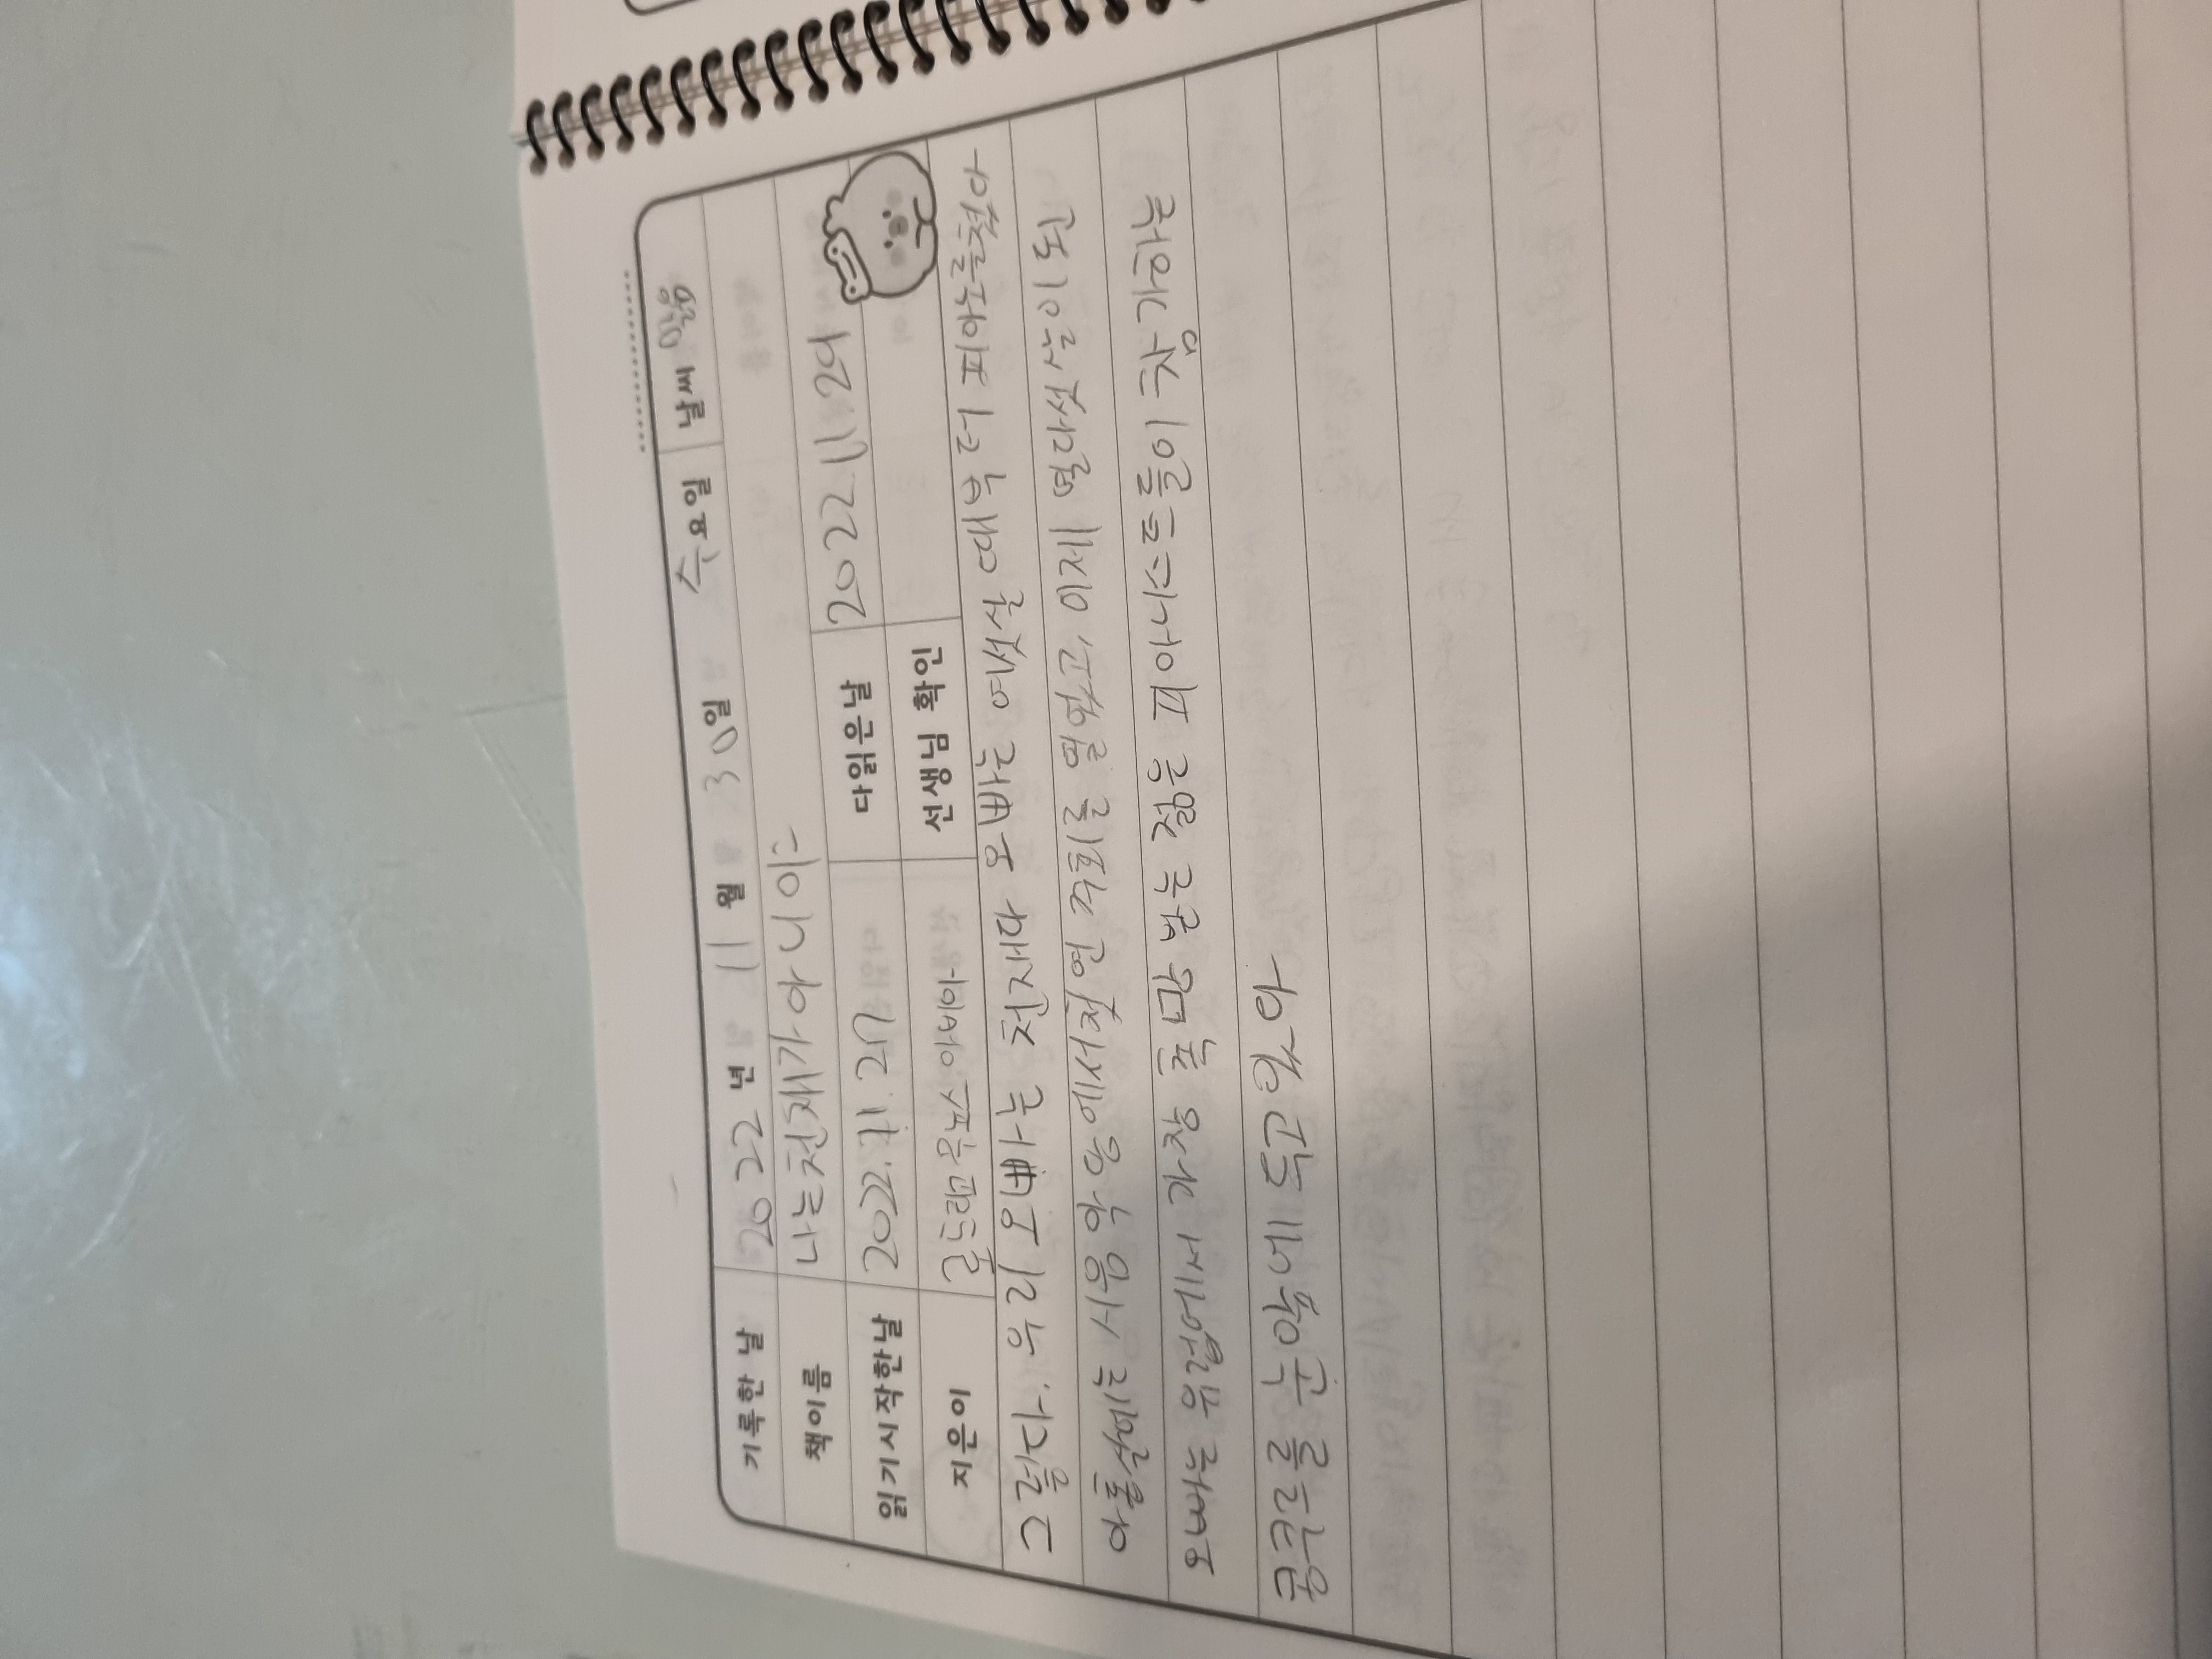 기록한 날 2022년 11월 30일 수요일 날씨 맑음
책이름 나는천재가아니야
읽기시작한날 2022.11.27 다읽은날 2022.11.29
지은이 로드리고 무뇨스 아비아 선생님 확인
그렇다. 우리 오빠는 천재다 오빠는 여섯살 때부터 피아노를쳤다
아홉살에는 시음악당에서첫연주회를 열었고, 이제 열다섯살이 된
오빠는 유럽에서 가장 촉망 받는 젊은 피아니스트들이 참가하는
콩쿠르를 눈앞에 두고있다